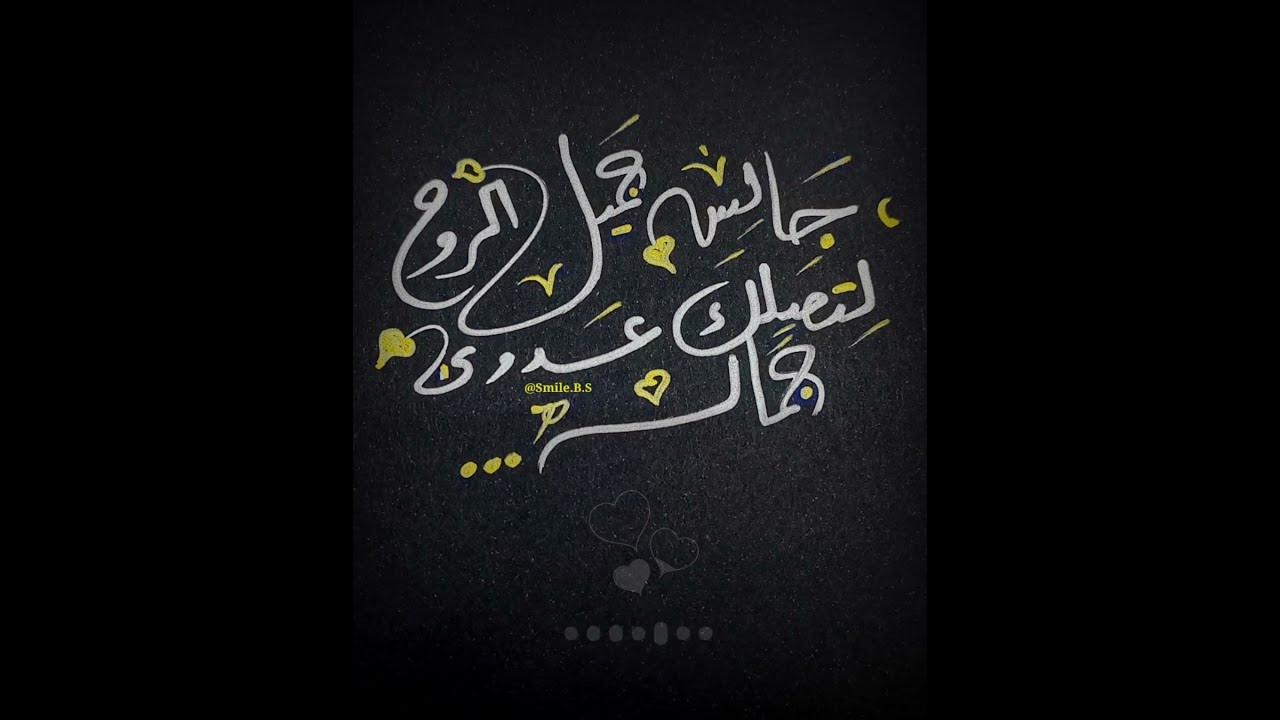 جَالِس جَميَل الروح
لِتصَلِكَ عَدوى
جمَاله ...
@Smile.B.S